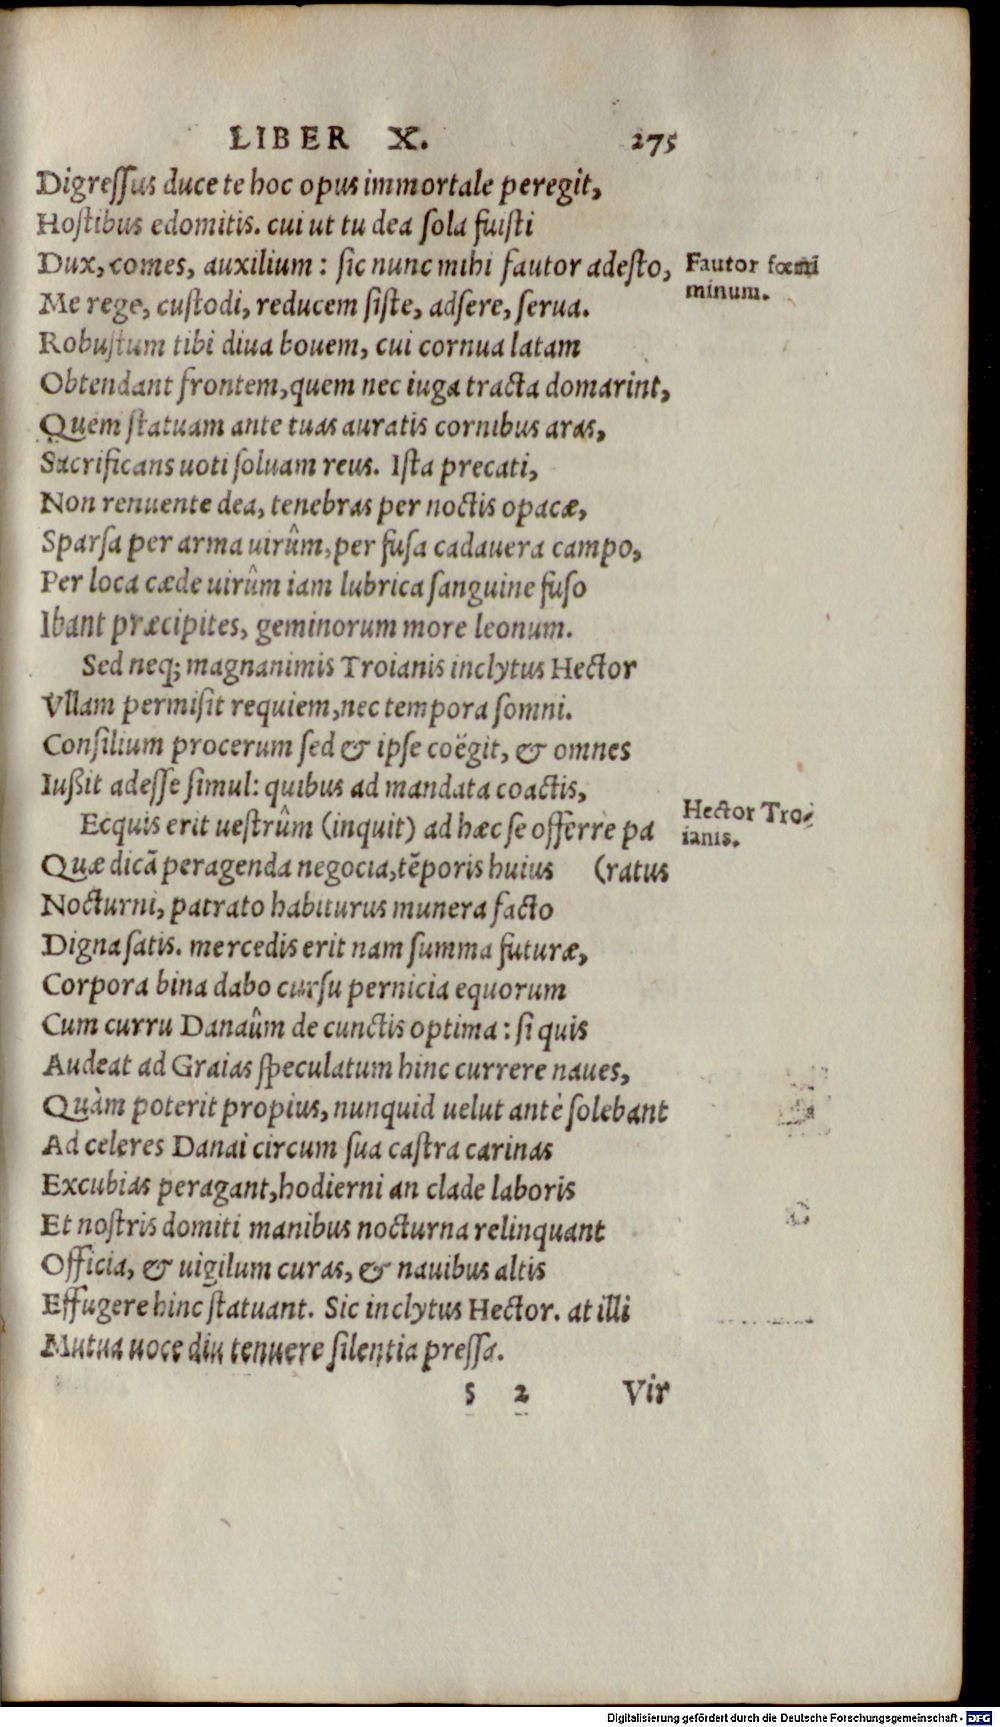 LIBER X. 275
Digreſſus duce te hoc opus immortale peregit,
Hoſtibus edomitis. cui ut tu dea ſola fuiſti
Dux, comes, auxilium: ſic nunc mihi fautor adeſto,
Fautor fœmi
minum.
Me rege, cuſtodi, reducem ſiſte, adſere, ſerua.
Robuſtum tibi diua bouem, cui cornua latam
Obtendant frontem, quem nec iuga tracta domarint,
Quem ſtatuam ante tuas auratis cornibus aras,
Sacrificans uoti ſoluam reus. Iſta precati,
Non renuente dea, tenebras per noctis opacæ,
Sparſa per arma uirûm, per fuſa cadauera campo,
Per loca cæde uirûm iam lubrica ſanguine fuſo
Ibant præcipites, geminorum more leonum.
Sed neq; magnanimis Troianis inclytus Hector
Vllam permiſit requiem, nec tempora ſomni.
Conſilium procerum ſed & ipſe coëgit, & omnes
Iußit adeſſe ſimul: quibus ad mandata coactis,
Hector Tro-
ianis.
Ecquis erit ueſtrûm (inquit) ad hæc ſe offerre pa
Quæ dicã peragenda negocia, tẽporis huius (ratus
Nocturni, patrato habiturus munera facto
Digna ſatis. mercedis erit nam ſumma futuræ,
Corpora bina dabo curſu pernicia equorum
Cum curru Danaûm de cunctis optima: ſi quis
Audeat ad Graias ſpeculatum hinc currere naues,
Quàm poterit propius, nunquid uelut antè ſolebant
Ad celeres Danai circum ſua caſtra carinas
Excubias peragant, hodierni an clade laboris
Et noſtris domiti manibus nocturna relinquant
Officia, & uigilum curas, & nauibus altis
Effugere hinc ſtatuant. Sic inclytus Hector. at illi
Mutua uoce diu tenuere ſilentia preſſa.
s 2 Vir
Digitalisierung gefördert durch die Deutsche Forschungsgemeinschaft - DFG